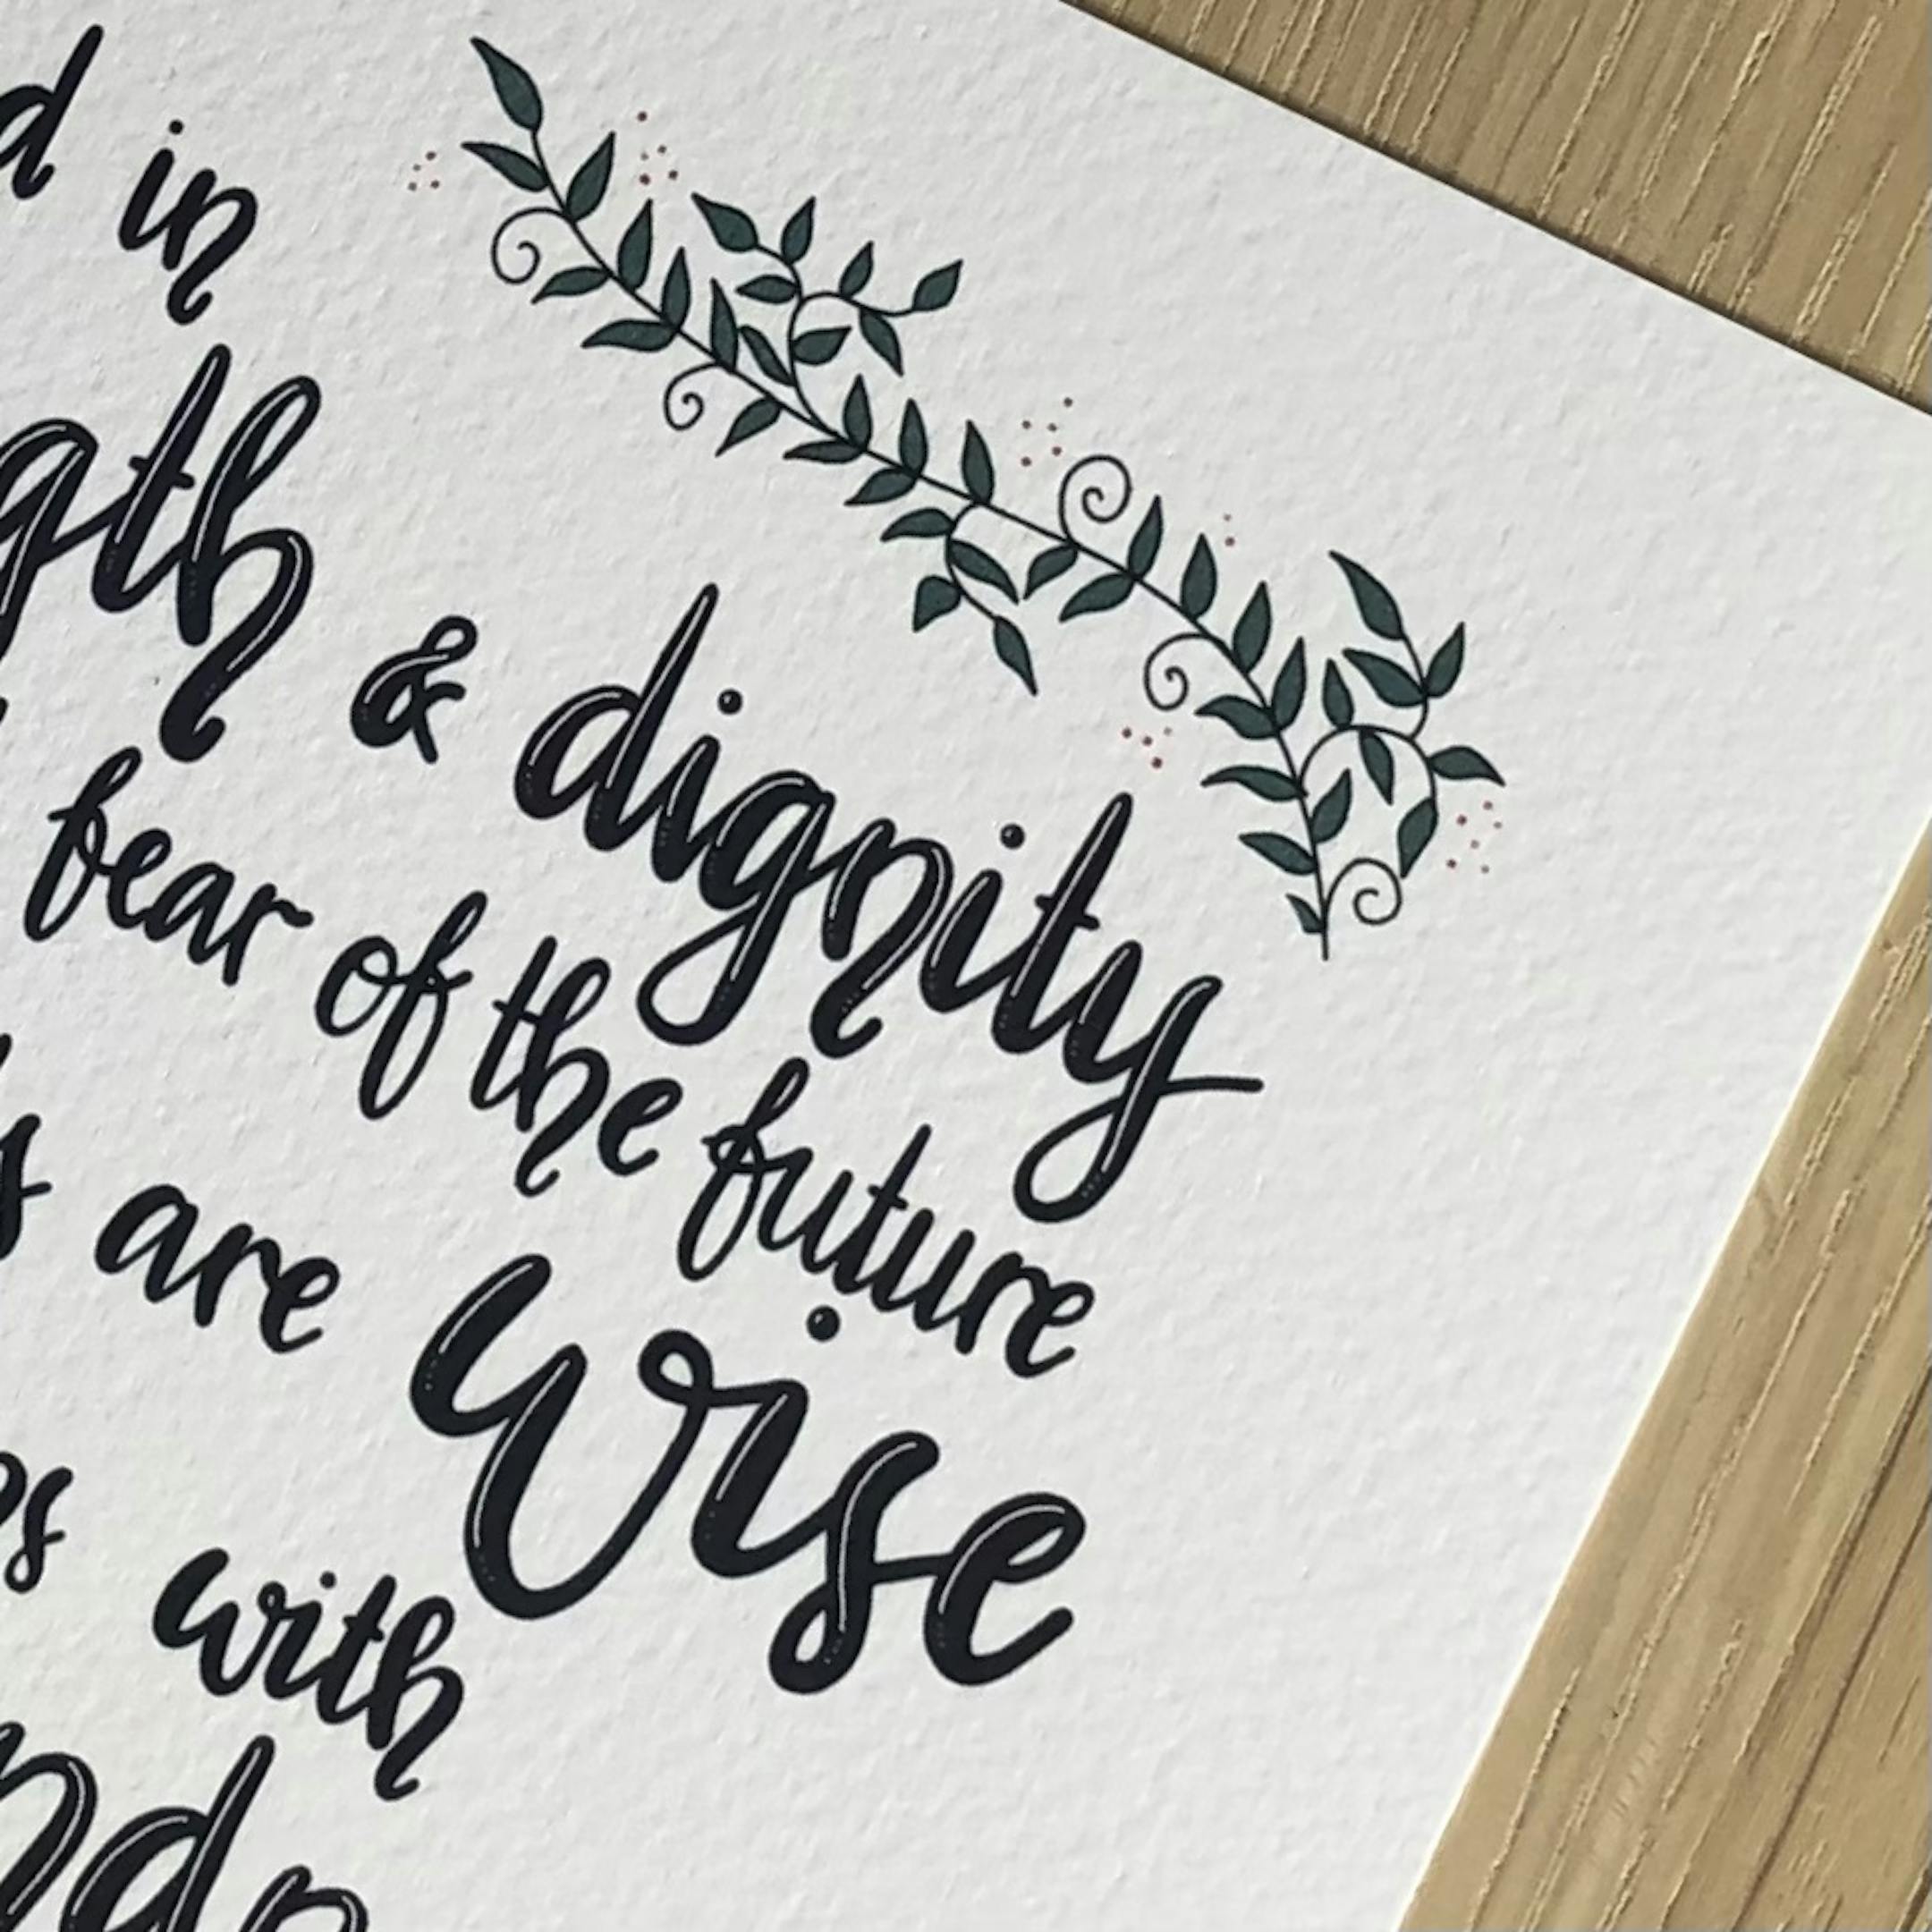 d in
gth & dignity
fear of the future
s are wise
es with
nd